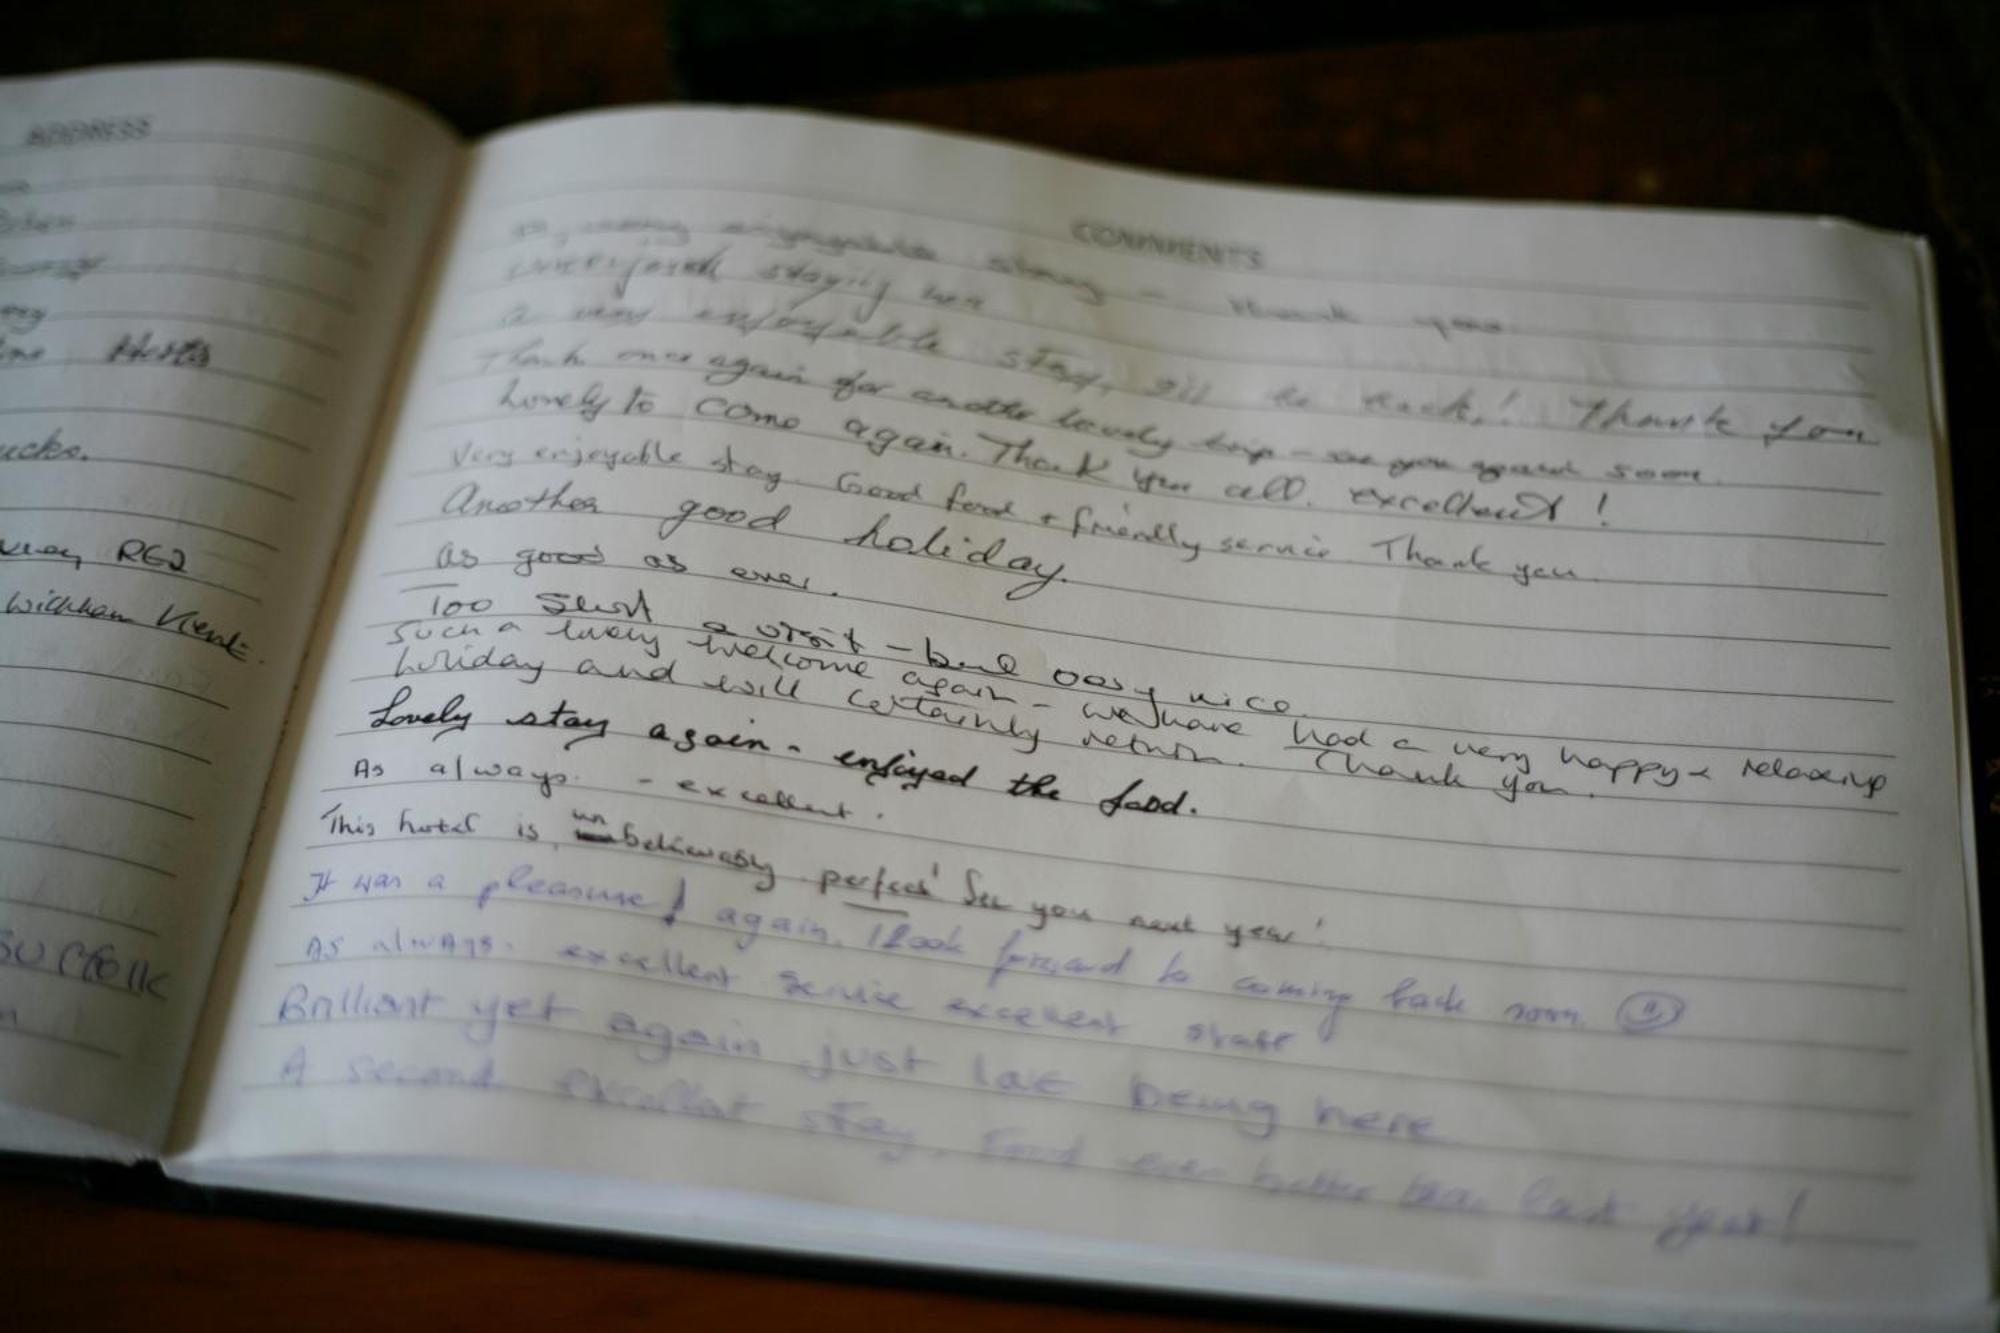 ADDRESS
Herts
ucks.
RG2
Wickham Kent.
SUFFOLK
COMMENTS
enjoyable stay - thank you
staying here
a very enjoyable stay, will be back! Thank you
Thank once again for another lovely trip - see you again soon
Lovely to come again. Thank you all. excellent!
Very enjoyable stay. Good food + friendly service. Thank you
Another good holiday.
as good as ever.
Too short a visit - but very nice
Such a lovely welcome again - we have had a very happy + relaxing
holiday and will certainly return. Thank you.
Lovely stay again - enjoyed the food.
As always - excellent.
This hotel is un believably perfect! See you next year!
It was a pleasure! again. I look forward to coming back soon
As always. excellent service excellent staff
Brilliant yet again just lov being here
A second excellent stay. Food even better than last year!